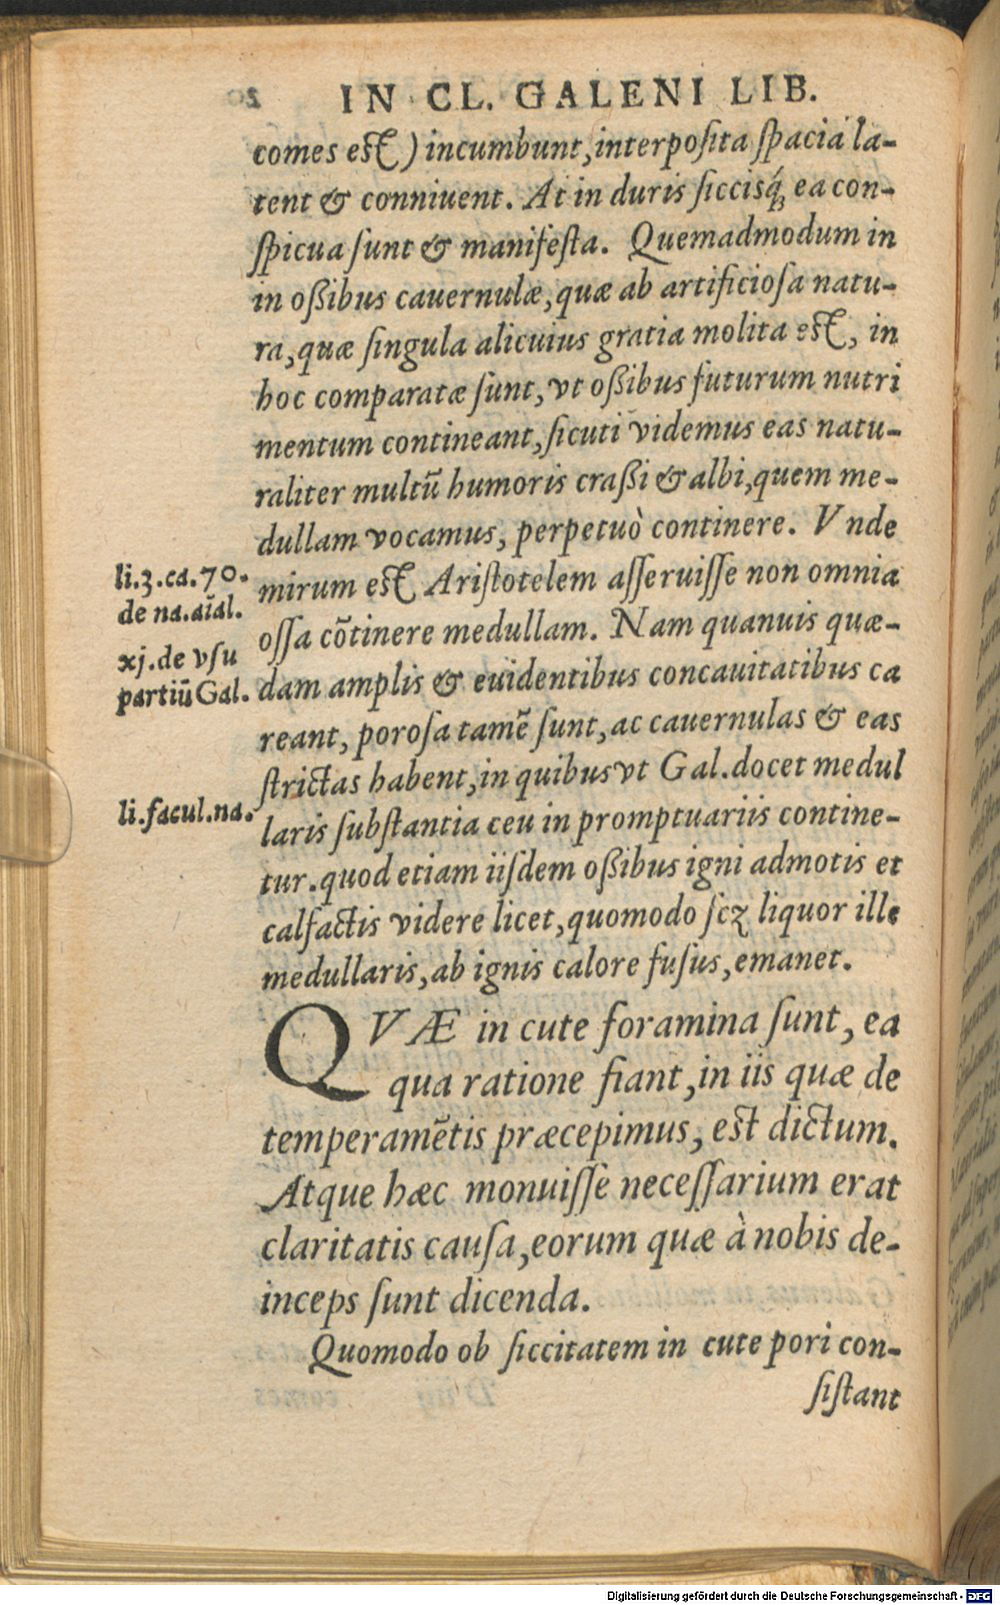 IN CL. GALENI LIB.
comes est) incumbunt, interposita spacia la-
tent & conniuent. At in duris siccisq́ꝫ ea con-
spicua sunt & manifesta. Quemadmodum in
in oßibus cauernulæ, quæ ab artificiosa natu-
ra, quæ singula alicuius gratia molita est, in
hoc comparatæ sunt, vt oßibus futurum nutri
mentum contineant, sicuti videmus eas natu-
raliter multũ humoris craßi & albi, quem me-
dullam vocamus, perpetuò continere. Vnde
li.3.ca.70.
mirum est Aristotelem asseruisse non omnia
de na.aīal.
ossa cõtinere medullam. Nam quanuis quæ-
xj.de vsu
partiũ Gal.
dam amplis & euidentibus concauitatibus ca
reant, porosa tamẽ sunt, ac cauernulas & eas
strictas habent, in quibus vt Gal. docet medul
li.facul.na.
laris substantia ceu in promptuariis contine-
tur. quod etiam iisdem oßibus igni admotis et
calfactis videre licet, quomodo scꝫ liquor ille
medullaris, ab ignis calore fusus, emanet.
QVÆ in cute foramina sunt, ea
qua ratione fiant, in iis quæ de
temperamẽtis præcepimus, est dictum.
Atque hæc monuisse necessarium erat
claritatis causa, eorum quæ à nobis de-
inceps sunt dicenda.
Quomodo ob siccitatem in cute pori con-
sistant
Digitalisierung gefördert durch die Deutsche Forschungsgemeinschaft - DFG